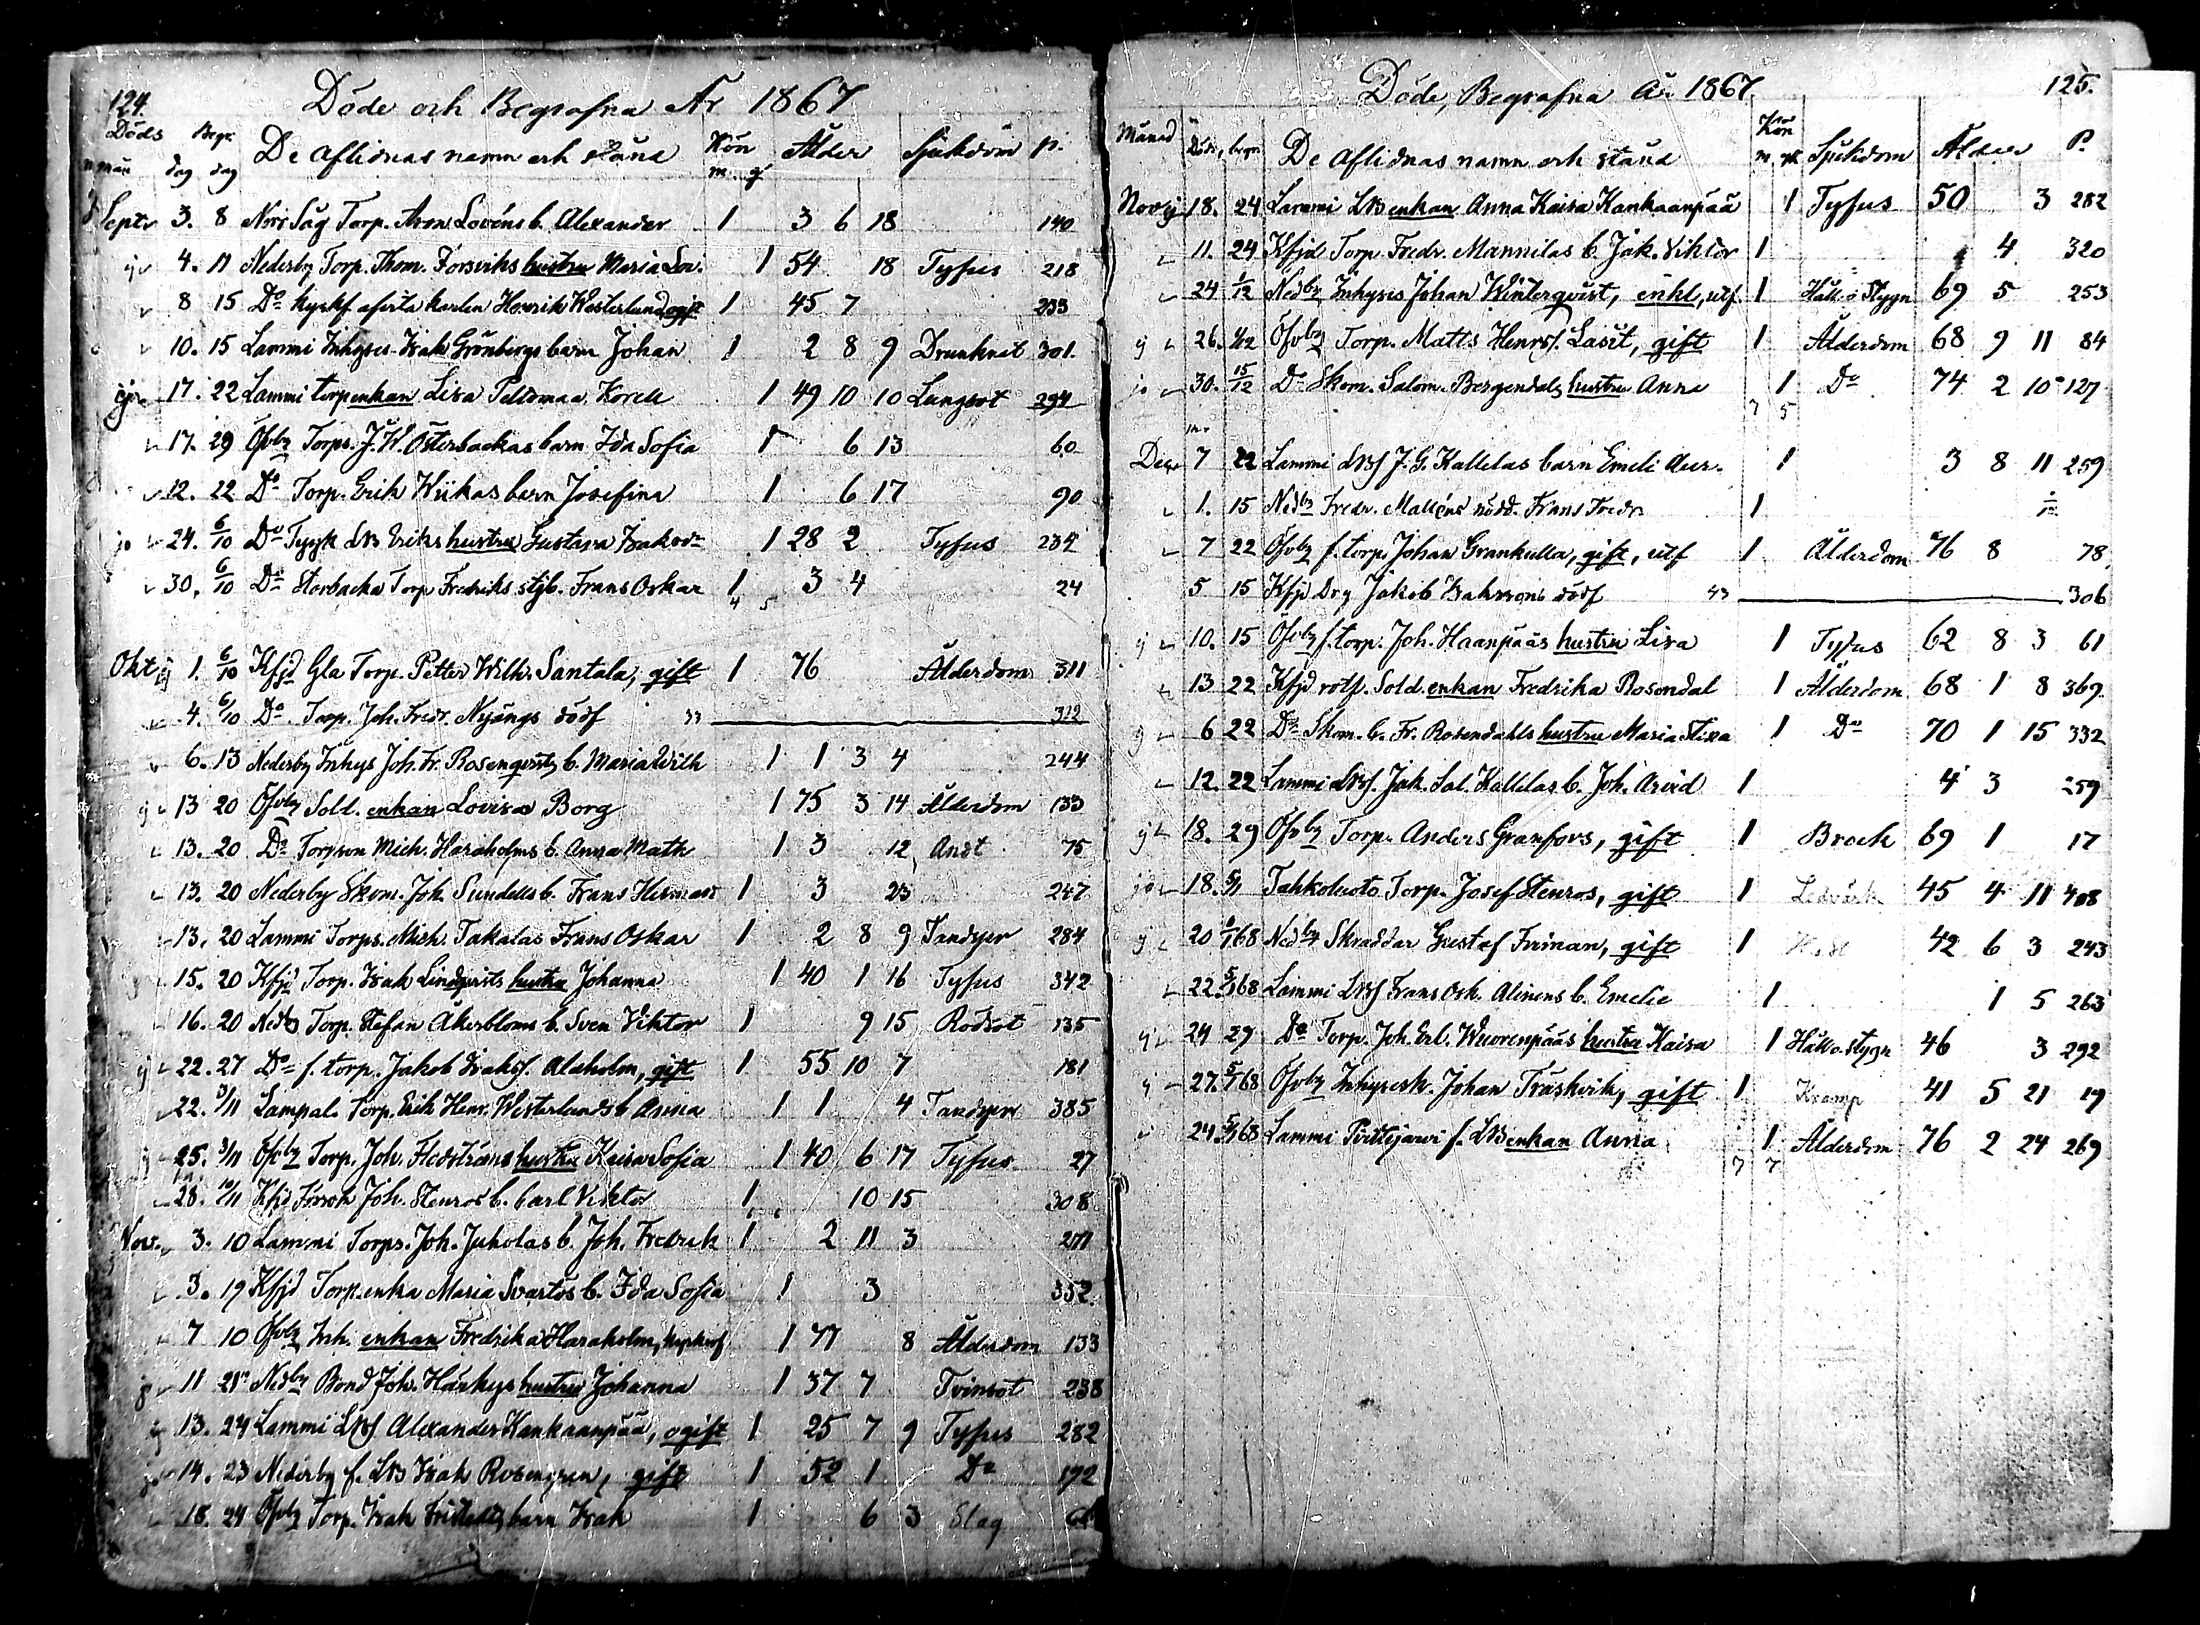 124.
Döde och Begrafna År 1867
Döds Begr. De aflidnas namn och stånd Kön Ålder Sjukdom p.
mån dag dag m. q
Septr 3. 8 Norr Såg Torp. Aron Lovéns b. Alexander 1 3 6 18 140
4. 11 Nederby Torp. Thom. Forsviks hustru Maria Lov. 1 54 18 Tyfus 218
8 15 Do kyrkf. Henrik Westerlund ogift 1 45 7 233
10. 15 Lammi Inhyses Isak Grönbergs barn Johan 1 2 8 9 Drunknat 301.
17. 22 Lammi torpenkan Lisa Peldomaa Korell 1 49 10 10 Lungsot 294
17. 29 Öfvby Torps. J. W. Österbackas barn Ida Sofia 1 6 13 60
12. 22 Do Torp. Erik Wiikas barn Josefina 1 6 17 90
24. 6/10 Do Tysk LB Eriks hustru Gustava Isaksdr 1 28 2 Tyfus 234
30. 6/10 Do Storbacka Torp Fredriks stjb. Frans Oskar 1 3 4 24
4 5
Okt 1. 6/10 Kfjd Gla Torp. Petter Wilh. Santala, gift 1 76 Ålderdom 311
4. 6/10 Do Torp. Joh. Fredr. Nyängs dödf 33 312
6. 13 Nederby Inhys Joh. Fr. Rosenqvists b. Maria Wilh 1 1 3 4 244
13 20 Öfvby Sold. enkan Lovisa Borg 1 75 3 14 Ålderdom 133
13. 20 Do Torpson Mich. Haraholms b. Anna Math 1 3 12 Andt 75
13. 20 Nederby Skom. Joh. Sundells b. Frans Herman 1 3 23 247
13. 20 Lammi Torps. Mich. Takalas Frans Oskar 1 2 8 9 Tandsper 284
15. 20 Kfjd Torp. Isak Lindqvists hustru Johanna 1 40 1 16 Tyfus 342
16. 20 Nedby Torp. Stefan Åkerbloms b. Sven Viktor 1 9 15 Rödsot 135
22. 27 Do f. torp. Jakob Isakss. Alaholm, gift 1 55 10 7 181
22. 3/11 Lampal. Torp. Erik Henr. Westerlunds b Anna 1 1 4 Tandsper 385
25. 3/11 Öfvby Torp. Joh. Hedströms hustru Kaisa Sofia 1 40 6 17 Tyfus 27
28. 10/11 Kfjd Joh. Stenros b. Carl Viktor 1 10 15 308
Nov. 3. 10 Lammi Torps. Joh. Juholas b. Joh. Fredrik 1 2 11 3 271
3. 19 Kfjd Torp.enka Maria Svartös b. Ida Sofia 1 3 352
7 10 Öfvby Inh. enkan Fredrika Haraholm, 1 77 8 Ålderdom 133
11 21 Nedby Bond Joh. Harkys hustru Johanna 1 37 7 Tvinsot 238
13. 24 Lammi LBs. Alexander Kankaanpää, ogift 1 25 7 9 Tyfus 282
14. 23 Nederby f. LB Isak Rosengren, gift 1 52 1 Do 192
18. 24 Öfvby Torp. Isak barn Isak 1 6 3 Slag
Döde, Begrafna År 1867 125.
Månad Döds, begr. De aflidnas namn och stånd Kön Sjukdom Ålder P.
m. qk
Nov 18. 24 Lammi LB enkan Anna Kaisa Kankaanpää 1 Tyfus 50 3 282
11. 24 Kfjd Torp. Fredr. Mannilas b. Jak. Viktor 1 4 320
24 1/12 Nedby Inhyses Johan Winterqvist, enkl, utf. 1 Håll o Stygn 69 5 253
26. 1/12 Öfvby Torp. Matts Henrs. Lasit, gift 1 Ålderdom 68 9 11 84
30. 15/12 Do Skom. Salom. Bergendals hustru Anna 1 Do 74 2 10 127
7 5
Dec. 7 22 Lammi LBs J. G. Kallelas barn Emeli Aur. 1 3 8 11 259
1. 15 Nedby Fredr. Malléns nödd. Frans Fredr 1
7 22 Öfvby f. torp Johan Grankulla, gift, utf 1 Ålderdom 76 8 78
5 15 Kfjd Drg Jakob Isakssons dödf 43 306
10. 15 Öfvby f. torp. Joh. Haanpääs hustru Lisa 1 Tyfus 62 8 3 61
13 22 Kfjd rotf. Sold. enkan Fredrika Rosendal 1 Ålderdom 68 1 8 369.
6 22 Do Skom. C. Fr. Rosendahls hustru Maria Stina 1 Do 70 1 15 332
12. 22 Lammi LBs. Jak. Sal. Kallelas b. Joh. Arvid 1 4 3 259
18. 29 Öfvby Torp. Anders Granfors, gift 1 Brock 69 1 17
18. 5/1 Tahkoluoto Torp. Josef Stenros, gift 1 Ledvärk 45 4 11 408
20 1/1 68 Nedby Skräddar Gustaf Firman, gift 1 42 6 3 243
22. 5/1 68 Lammi LBs Frans Osk. Alinens b. Emelie 1 1 5 263
24 29 Do Torp. Joh. Erl. Wuorenpääs hustru Kaisa 1 Håll o. stygn 46 3 292
27. 5/1 68 Öfvby Inhysesk. Johan Träskvik, gift 1 Kramp 41 5 21 19
24. 5/1 68 Lammi Pirttijärvi f. LB enkan Anna 1 Ålderdom 76 2 24 269
7 7